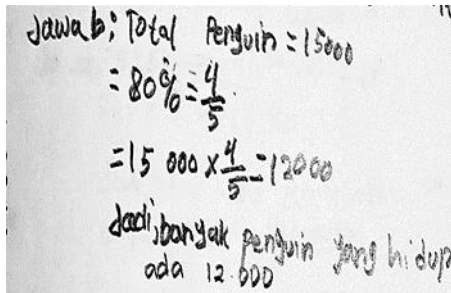 Jawab: Total Penguin = 15000
= 80% = 4/5.
= 15 000 x 4/5 = 12000
Jadi, banyak penguin yang hidup
ada 12.000